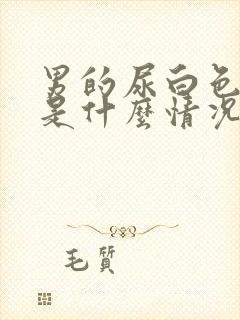 男的尿白色
是什麼情況
毛質